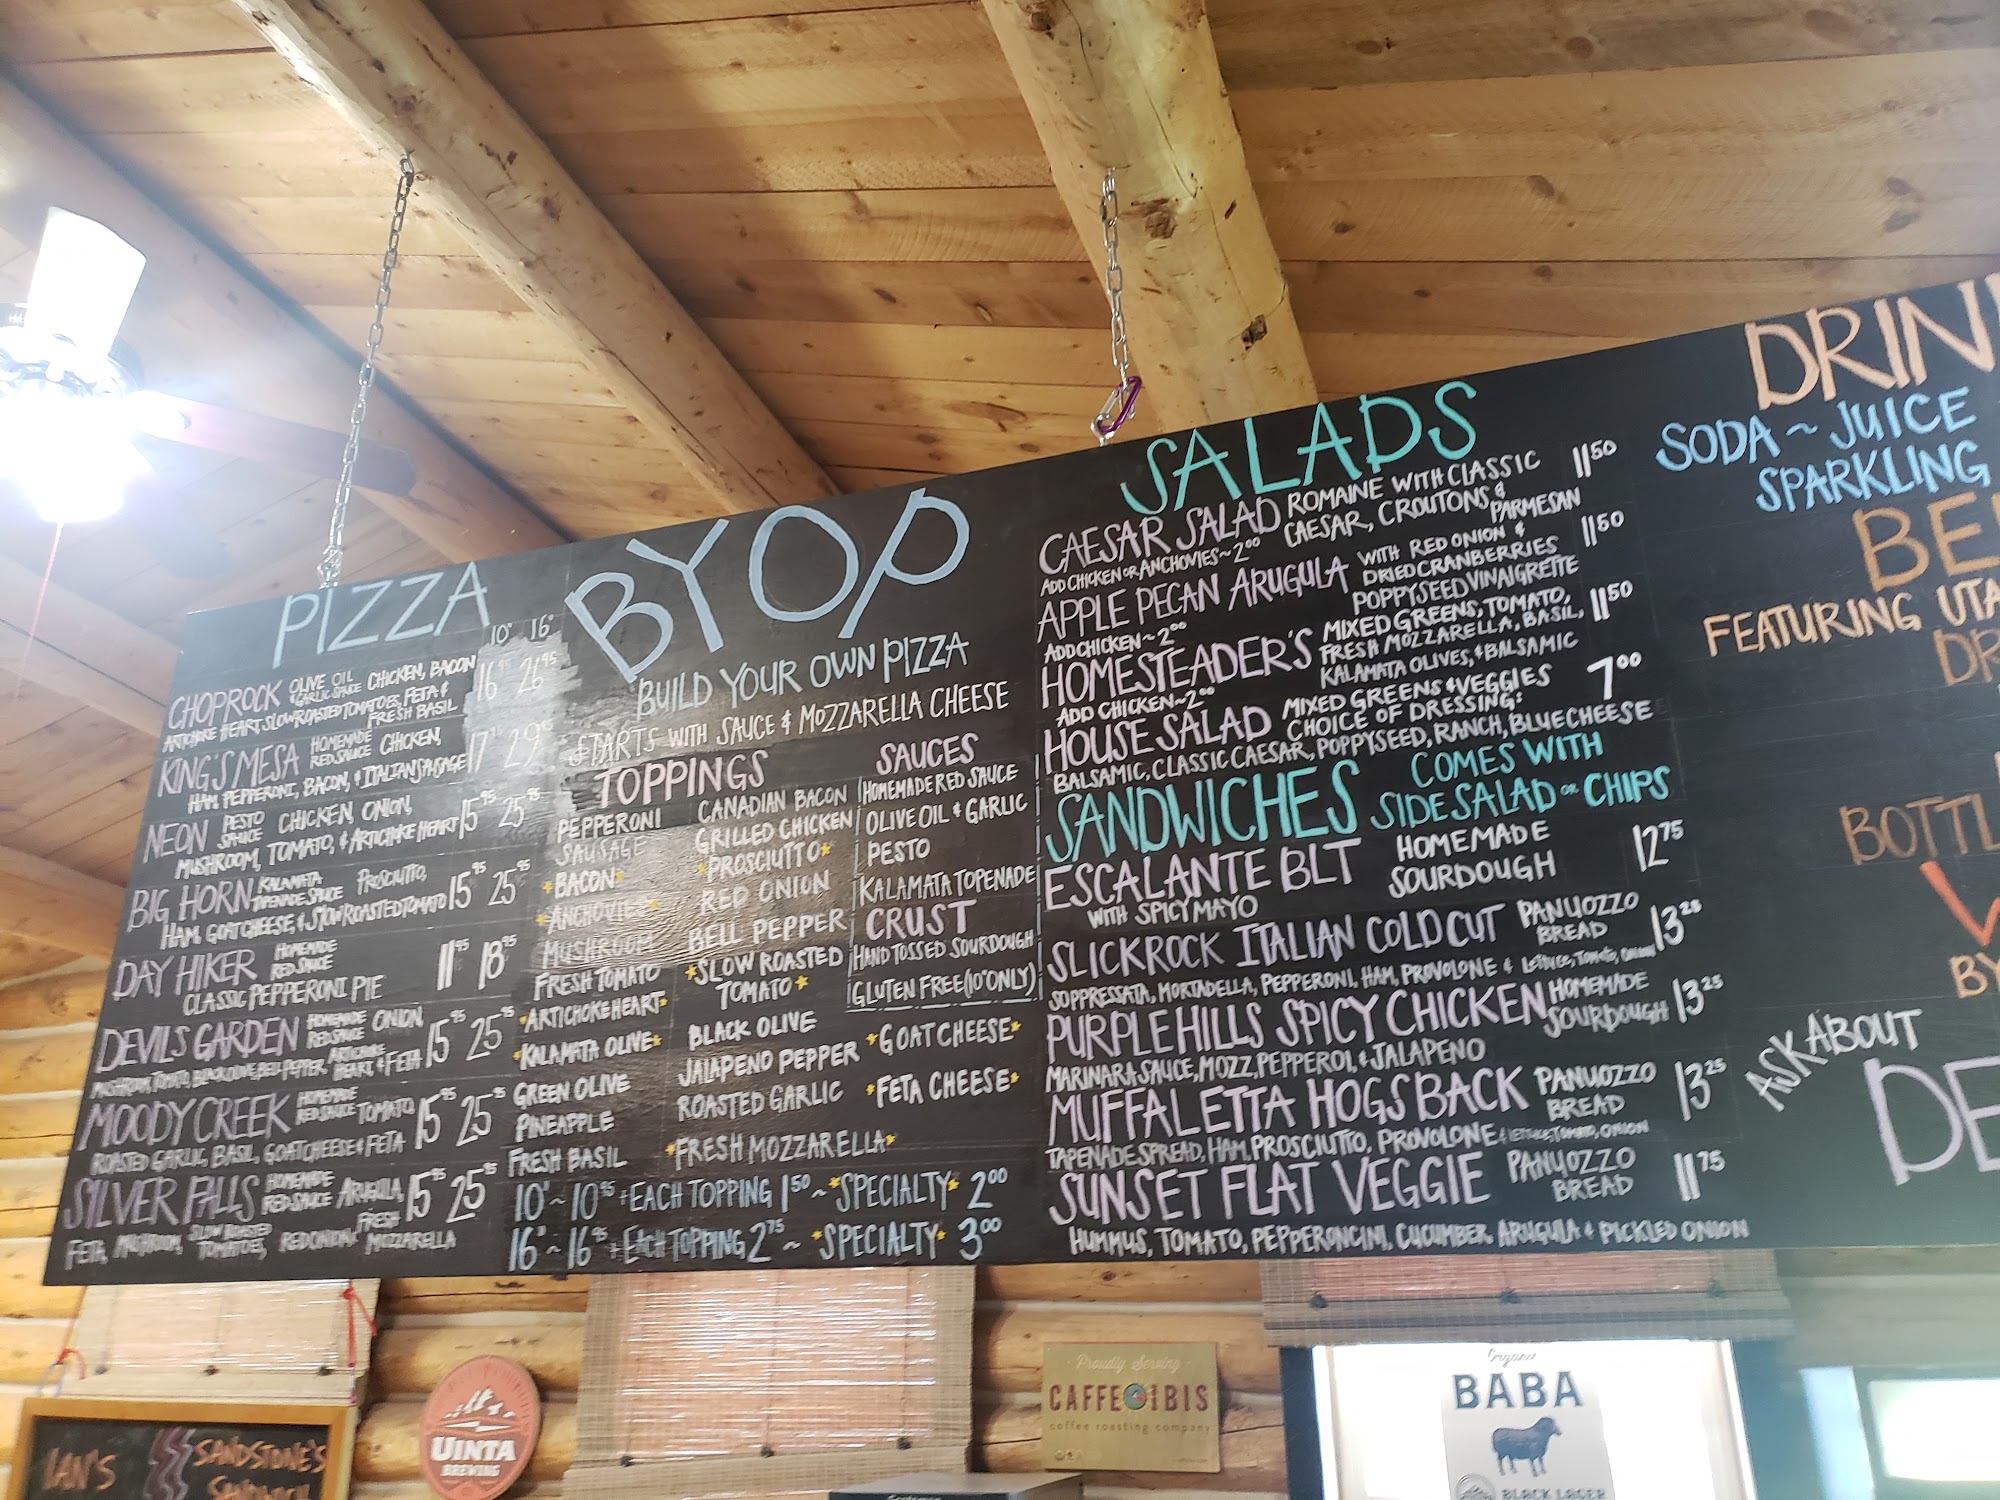 PIZZA
10" 16"
CHOPROCK OLIVE OIL & GARLIC SAUCE CHICKEN, BACON 16.95 26.95
ARTICHOKE HEART, SLOW ROASTED TOMATOES, FETA &
FRESH BASIL
KING'S MESA HOMEMADE RED SAUCE CHICKEN, 17.95 29.95
HAM, PEPPERONI, BACON, & ITALIAN SAUSAGE
NEON PESTO SAUCE CHICKEN, ONION, 15.95 25.95
MUSHROOM, TOMATO, & ARTICHOKE HEART
BIG HORN KALAMATA TOPENADE SAUCE PROSCIUTTO, 15.95 25.95
HAM, GOAT CHEESE, & SLOW ROASTED TOMATO
DAY HIKER HOMEMADE RED SAUCE 11.95 18.95
CLASSIC PEPPERONI PIE
DEVILS GARDEN HOMEMADE RED SAUCE ONION, 15.95 25.95
MUSHROOM, TOMATO, BLACK OLIVE, BELL PEPPER, ARTICHOKE HEART & FETA
MOODY CREEK HOMEMADE RED SAUCE TOMATO, 15.95 25.95
ROASTED GARLIC, BASIL, GOAT CHEESE & FETA
SILVER FALLS HOMEMADE RED SAUCE ARUGULA, 15.95 25.95
FETA, MUSHROOM, SLOW ROASTED TOMATOES, RED ONION, FRESH MOZZARELLA
BYOP
BUILD YOUR OWN PIZZA
STARTS WITH SAUCE & MOZZARELLA CHEESE
TOPPINGS
PEPPERONI
SAUSAGE
*BACON*
*ANCHOVIES*
MUSHROOM
FRESH TOMATO
*ARTICHOKE HEART*
*KALAMATA OLIVE*
GREEN OLIVE
PINEAPPLE
FRESH BASIL
CANADIAN BACON
GRILLED CHICKEN
*PROSCIUTTO*
RED ONION
BELL PEPPER
*SLOW ROASTED
TOMATO*
BLACK OLIVE
JALAPENO PEPPER
ROASTED GARLIC
*FRESH MOZZARELLA*
SAUCES
HOMEMADE RED SAUCE
OLIVE OIL & GARLIC
PESTO
KALAMATA TOPENADE
CRUST
HAND TOSSED SOURDOUGH
GLUTEN FREE (10" ONLY)
*GOAT CHEESE*
*FETA CHEESE*
10" ~ 10.95 + EACH TOPPING 1.50 ~ *SPECIALTY* 2.00
16" ~ 16.95 + EACH TOPPING 2.75 ~ *SPECIALTY* 3.00
SALADS
CAESAR SALAD ROMAINE WITH CLASSIC 11.50
CAESAR, CROUTONS & PARMESAN
ADD CHICKEN OR ANCHOVIES ~ 2.00
APPLE PECAN ARUGULA WITH RED ONION & 11.50
DRIED CRANBERRIES
POPPYSEED VINAIGRETTE
ADD CHICKEN ~ 2.00
HOMESTEADER'S MIXED GREENS, TOMATO, 11.50
FRESH MOZZARELLA, BASIL,
KALAMATA OLIVES, & BALSAMIC
ADD CHICKEN ~ 2.00
HOUSE SALAD MIXED GREENS & VEGGIES 7.00
CHOICE OF DRESSING:
BALSAMIC, CLASSIC CAESAR, POPPYSEED, RANCH, BLUE CHEESE
SANDWICHES COMES WITH
SIDE SALAD OR CHIPS
ESCALANTE BLT HOMEMADE SOURDOUGH 12.75
WITH SPICY MAYO
SLICKROCK ITALIAN COLD CUT PANUOZZO BREAD 13.25
SOPPRESSATA, MORTADELLA, PEPPERONI, HAM, PROVOLONE & LETTUCE, TOMATO, ONION
PURPLE HILLS SPICY CHICKEN HOMEMADE SOURDOUGH 13.25
MARINARA SAUCE, MOZZ, PEPPEROI, & JALAPENO
MUFFALETTA HOGSBACK PANUOZZO BREAD 13.25
TAPENADE SPREAD, HAM, PROSCIUTTO, PROVOLONE & LETTUCE, TOMATO, ONION
SUNSET FLAT VEGGIE PANUOZZO BREAD 11.75
HUMMUS, TOMATO, PEPPERONCINI, CUCUMBER, ARUGULA & PICKLED ONION
DRIN
SODA ~ JUICE
SPARKLING
BE
FEATURING UTA
DR
BOTTL
BY
ASK ABOUT
DE
IAN'S
SANDSTONE'S
SANDWICH
UINTA
BREWING
Proudly Serving
CAFFE IBIS
coffee roasting company
Organic
BABA
BLACK LAGER